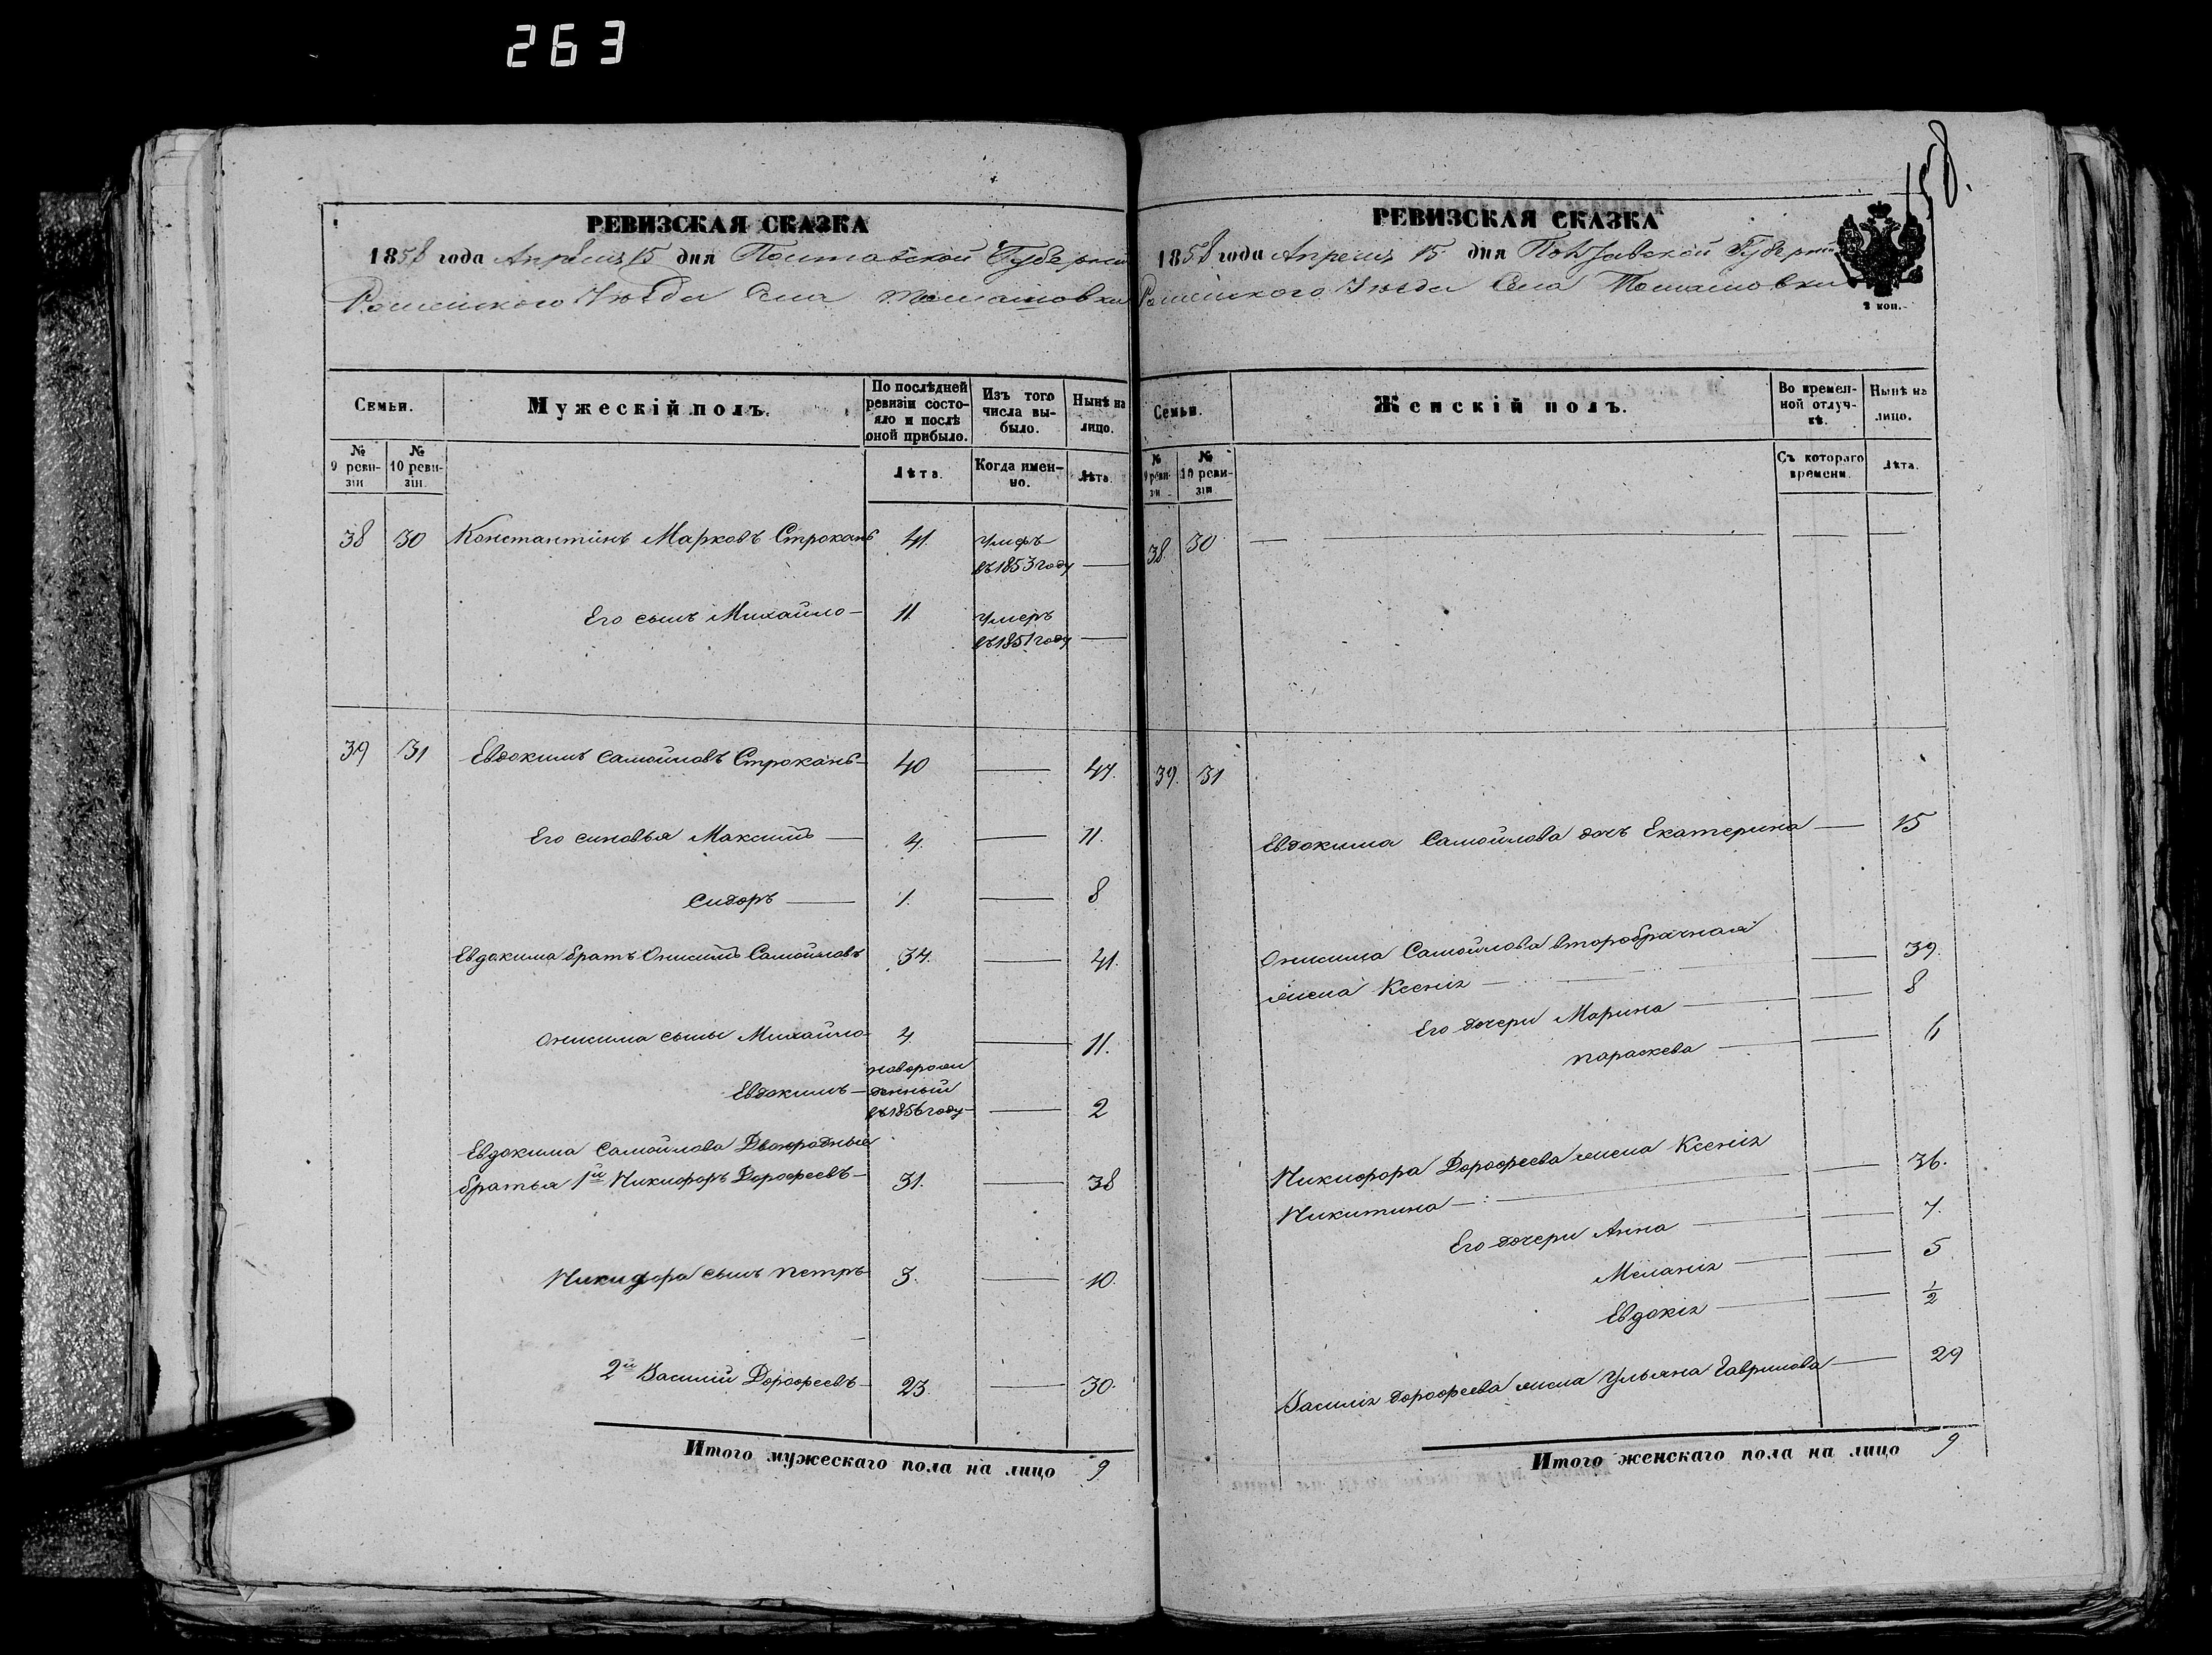 263
158.
РЕВИЗСКАЯ СКАЗКА
1858 года Апреля 15 дня Полтавской Губерніи
Роменского Уезда Села Томашовки
Семьи.
Мужескій полъ.
По послѣдней ревизіи состояло и послѣ оной прибыло.
Изъ того числа выбыло.
Нынѣ на лицо.
№ 9 ревизіи
№ 10 ревизіи.
Лѣта.
Когда именно.
Лѣта.
38 30 Константинъ Марковъ Строкань 41. Умеръ
въ 1853 году —
Его сынъ Михайло — 11. Умеръ
въ 1851 году —
39 31 Евдокимъ Самойловъ Строкань — 40 — 47.
Его синовья Максимъ — 4. — 11.
Сидоръ — 1. — 8
Евдокима братъ Онисимъ Самойловъ 34. — 41.
Онисима сыны Михайло 4 — 11.
новорож
Евдокимъ — денный
въ 1856 году — 2
Евдокима Самойлова Двоюродные
братья 1й Никифоръ Дорофеевъ — 31. — 38
Никифора сынъ Петръ 3. — 10.
2й Василий Дорофеевъ — 23. — 30.
Итого мужескаго пола на лицо 9
РЕВИЗСКАЯ СКАЗКА
1858 года Апреля 15 дня Полтавской Губерніи
Роменского Уезда Села Томашовки
2 коп.
Семьи.
Женскій полъ.
Во временной отлучкѣ.
Нынѣ на лицо.
№ 9 ревизіи
№ 10 ревизіи
Съ котораго времени.
Лѣта.
38. 30 — — — —
39. 31
Евдокима Самойлова дочь Екатерина — 15
Онисима Самойлова второбрачная
жена Ксенія — — 39.
Его дочери Марина — — 8
Параскева — — 6
Никифора Дорофеева жена Ксенія
Никитина — — 36.
Его дочери Анна — — 7.
Меланія — — 5
Евдокія — — ½
Василія Дорофеева жена Ульяна Гаврилова — 29
Итого женскаго пола на лицо 9